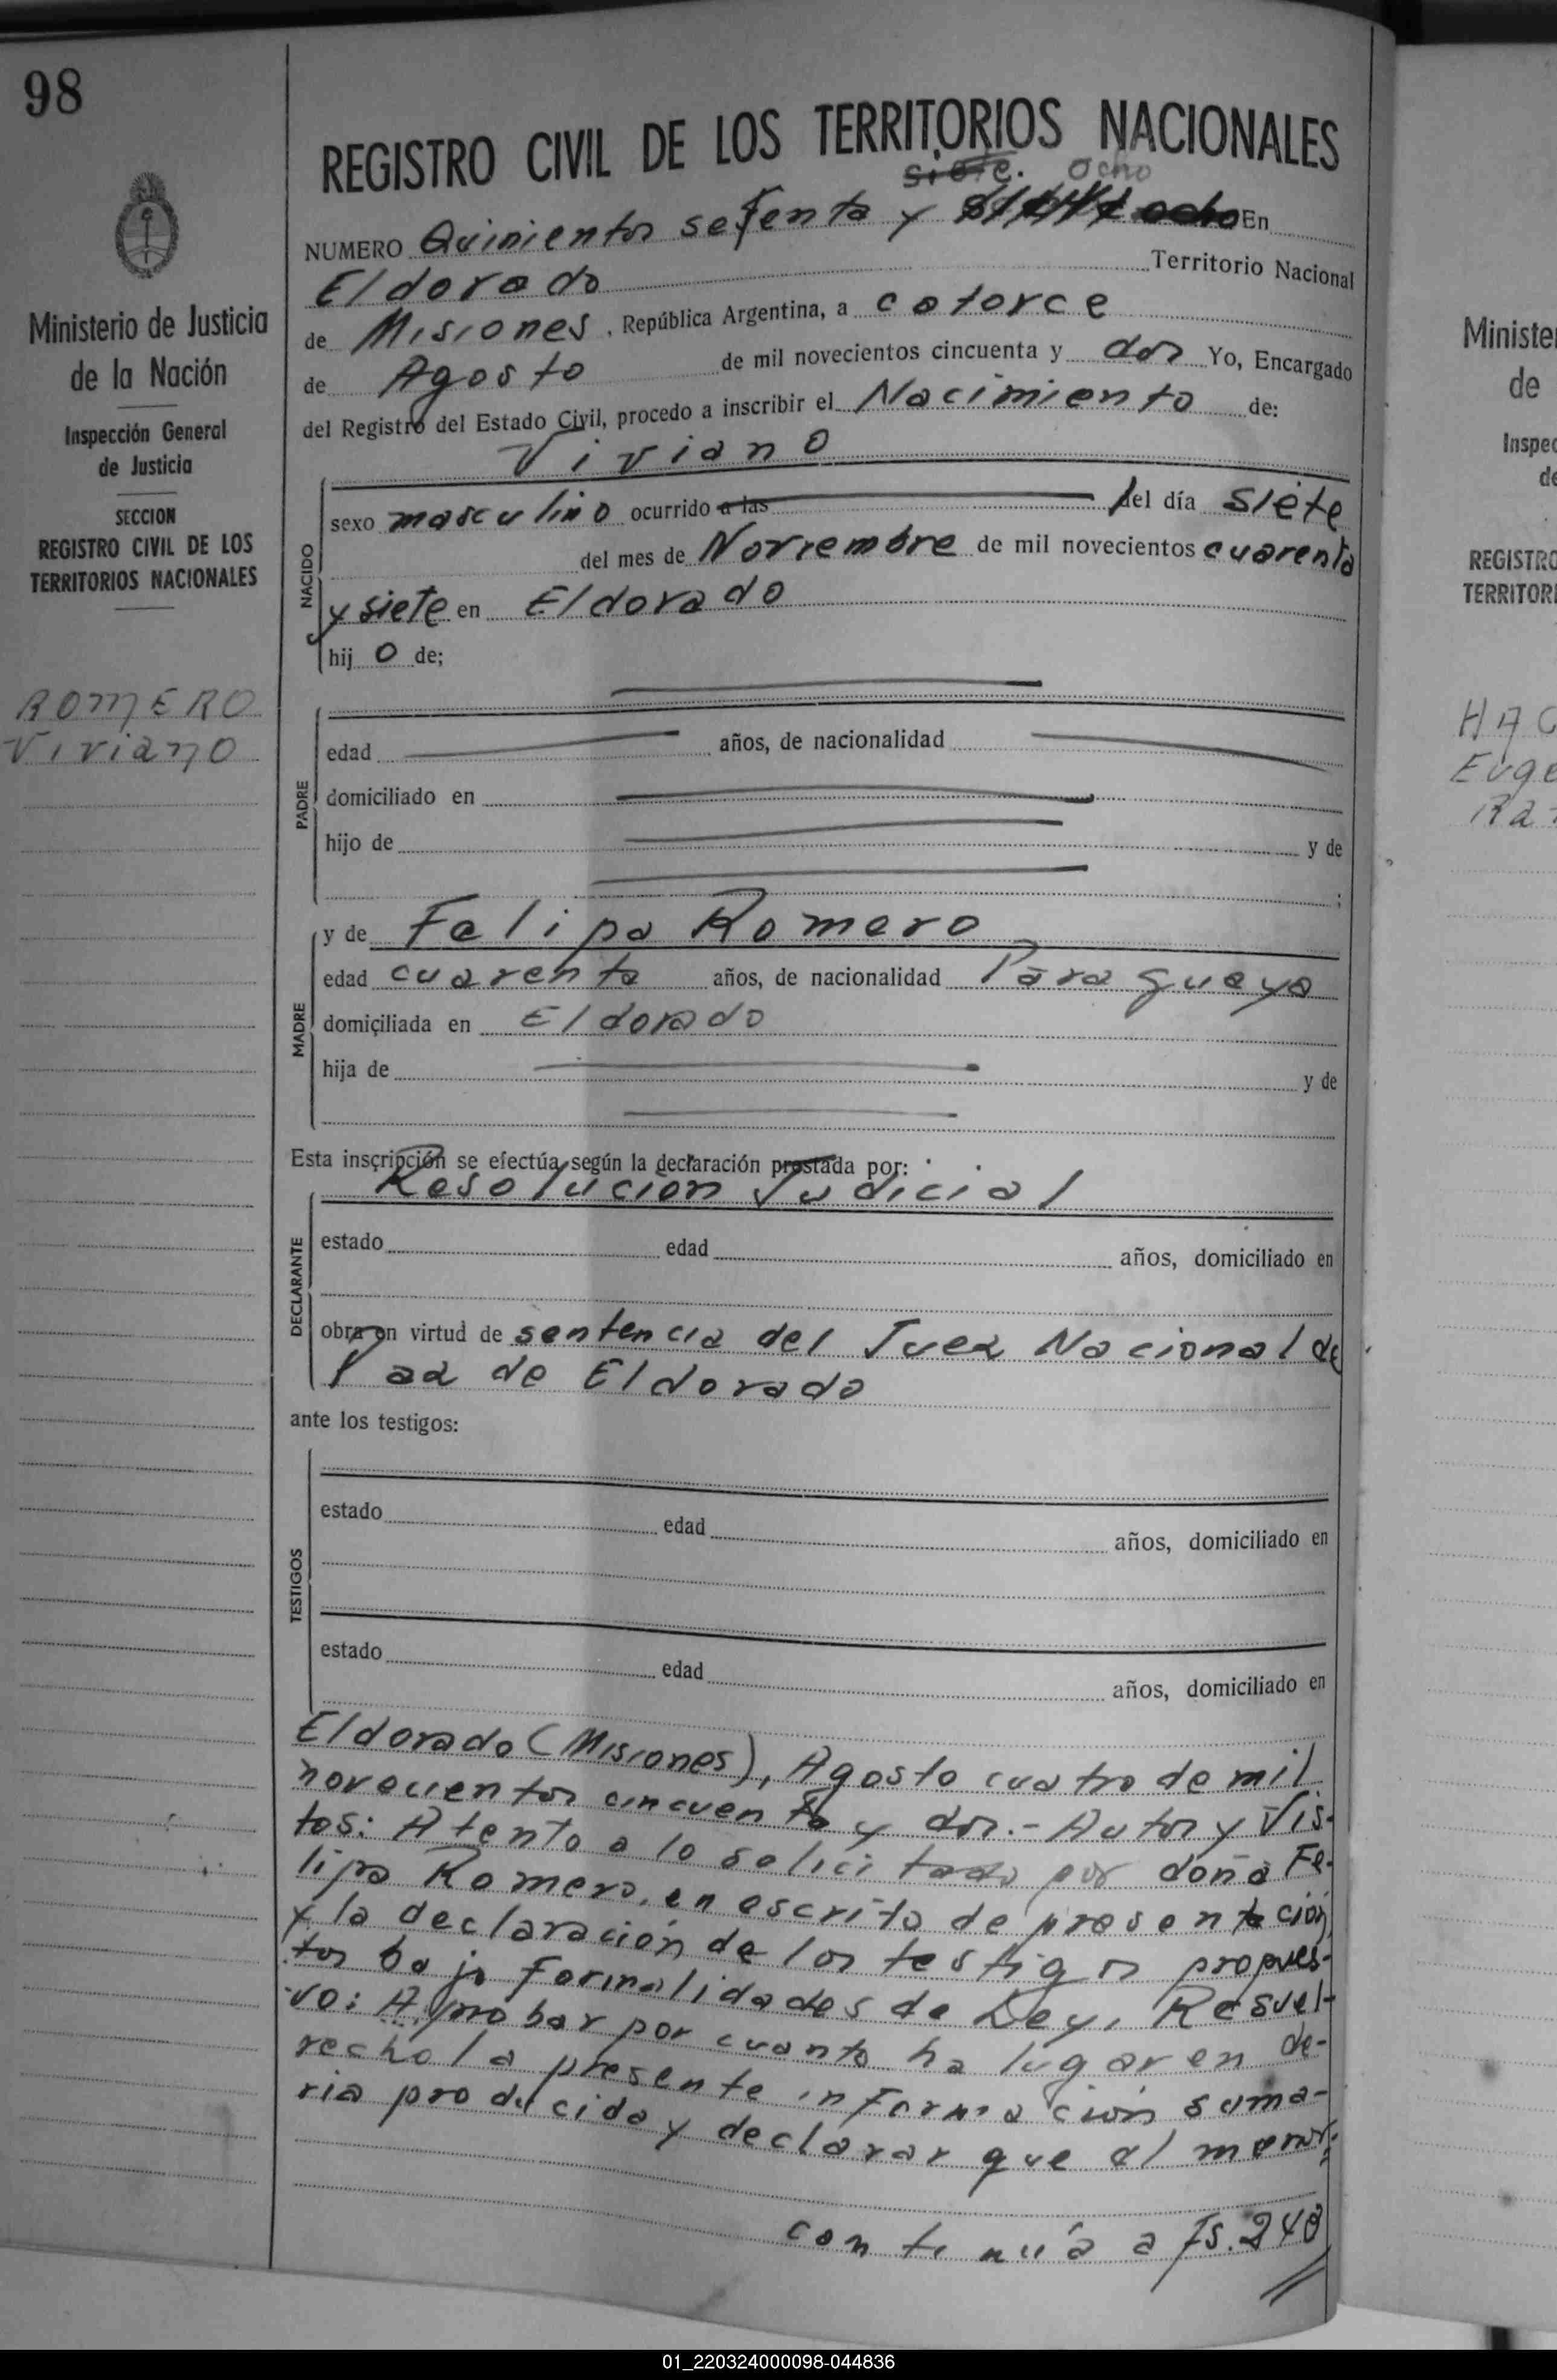 98
REGISTRO CIVIL DE LOS TERRITORIOS NACIONALES
siete. ocho
NUMERO Quinientos setenta y En
Eldorado Territorio Nacional
de Misiones, República Argentina, a catorce
de Agosto de mil novecientos cincuenta y dos Yo, Encargado
del Registro del Estado Civil, procedo a inscribir el Nacimiento de:
Viviano
Ministerio de Justicia
de la Nación
Inspección General
de Justicia
SECCION
REGISTRO CIVIL DE LOS
TERRITORIOS NACIONALES
ROMERO
Viviano
NACIDO
sexo masculino ocurrido a las del día siete
del mes de Noviembre de mil novecientos cuarenta
y siete en Eldorado
hij o de;
PADRE
edad años, de nacionalidad
domiciliado en
hijo de y de
;
MADRE
y de Felipa Romero
edad cuarenta años, de nacionalidad Paraguaya
domiciliada en Eldorado
hija de y de
Esta inscripción se efectúa según la declaración prestada por:
Resolución Judicial
DECLARANTE
estado edad años, domiciliado en
obra en virtud de sentencia del Juez Nacional de
Paz de Eldorado
ante los testigos:
TESTIGOS
estado edad años, domiciliado en
estado edad años, domiciliado en
Eldorado (Misiones), Agosto cuatro de mil
novecientos cincuenta y dos.- Autos y Vis-
tos: Atento a lo solicitado por doña Fe-
lipa Romero, en escrito de presentación
y la declaración de los testigos propues-
tos bajo formalidades de Ley, Resuel-
vo: Aprobar por cuanto ha lugar en de-
recho la presente información suma-
ria producida y declarar que el menor;
continúa a Fs. 240
Ministe
de
Inspec
de
REGISTRO
TERRITORI
HAC
Euge
Ra
01_220324000098-044836